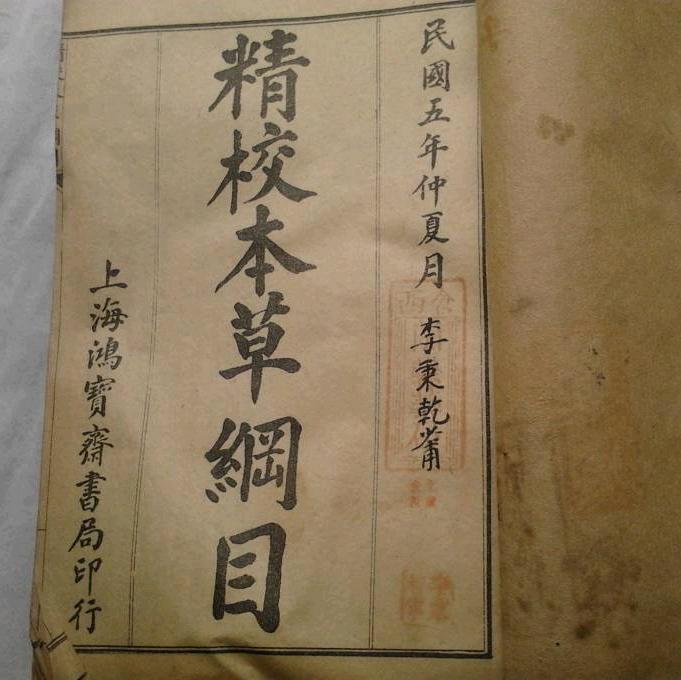 民國五年仲夏月 李秉乾莆
精校本草綱目
上海鴻寶齋書局印行